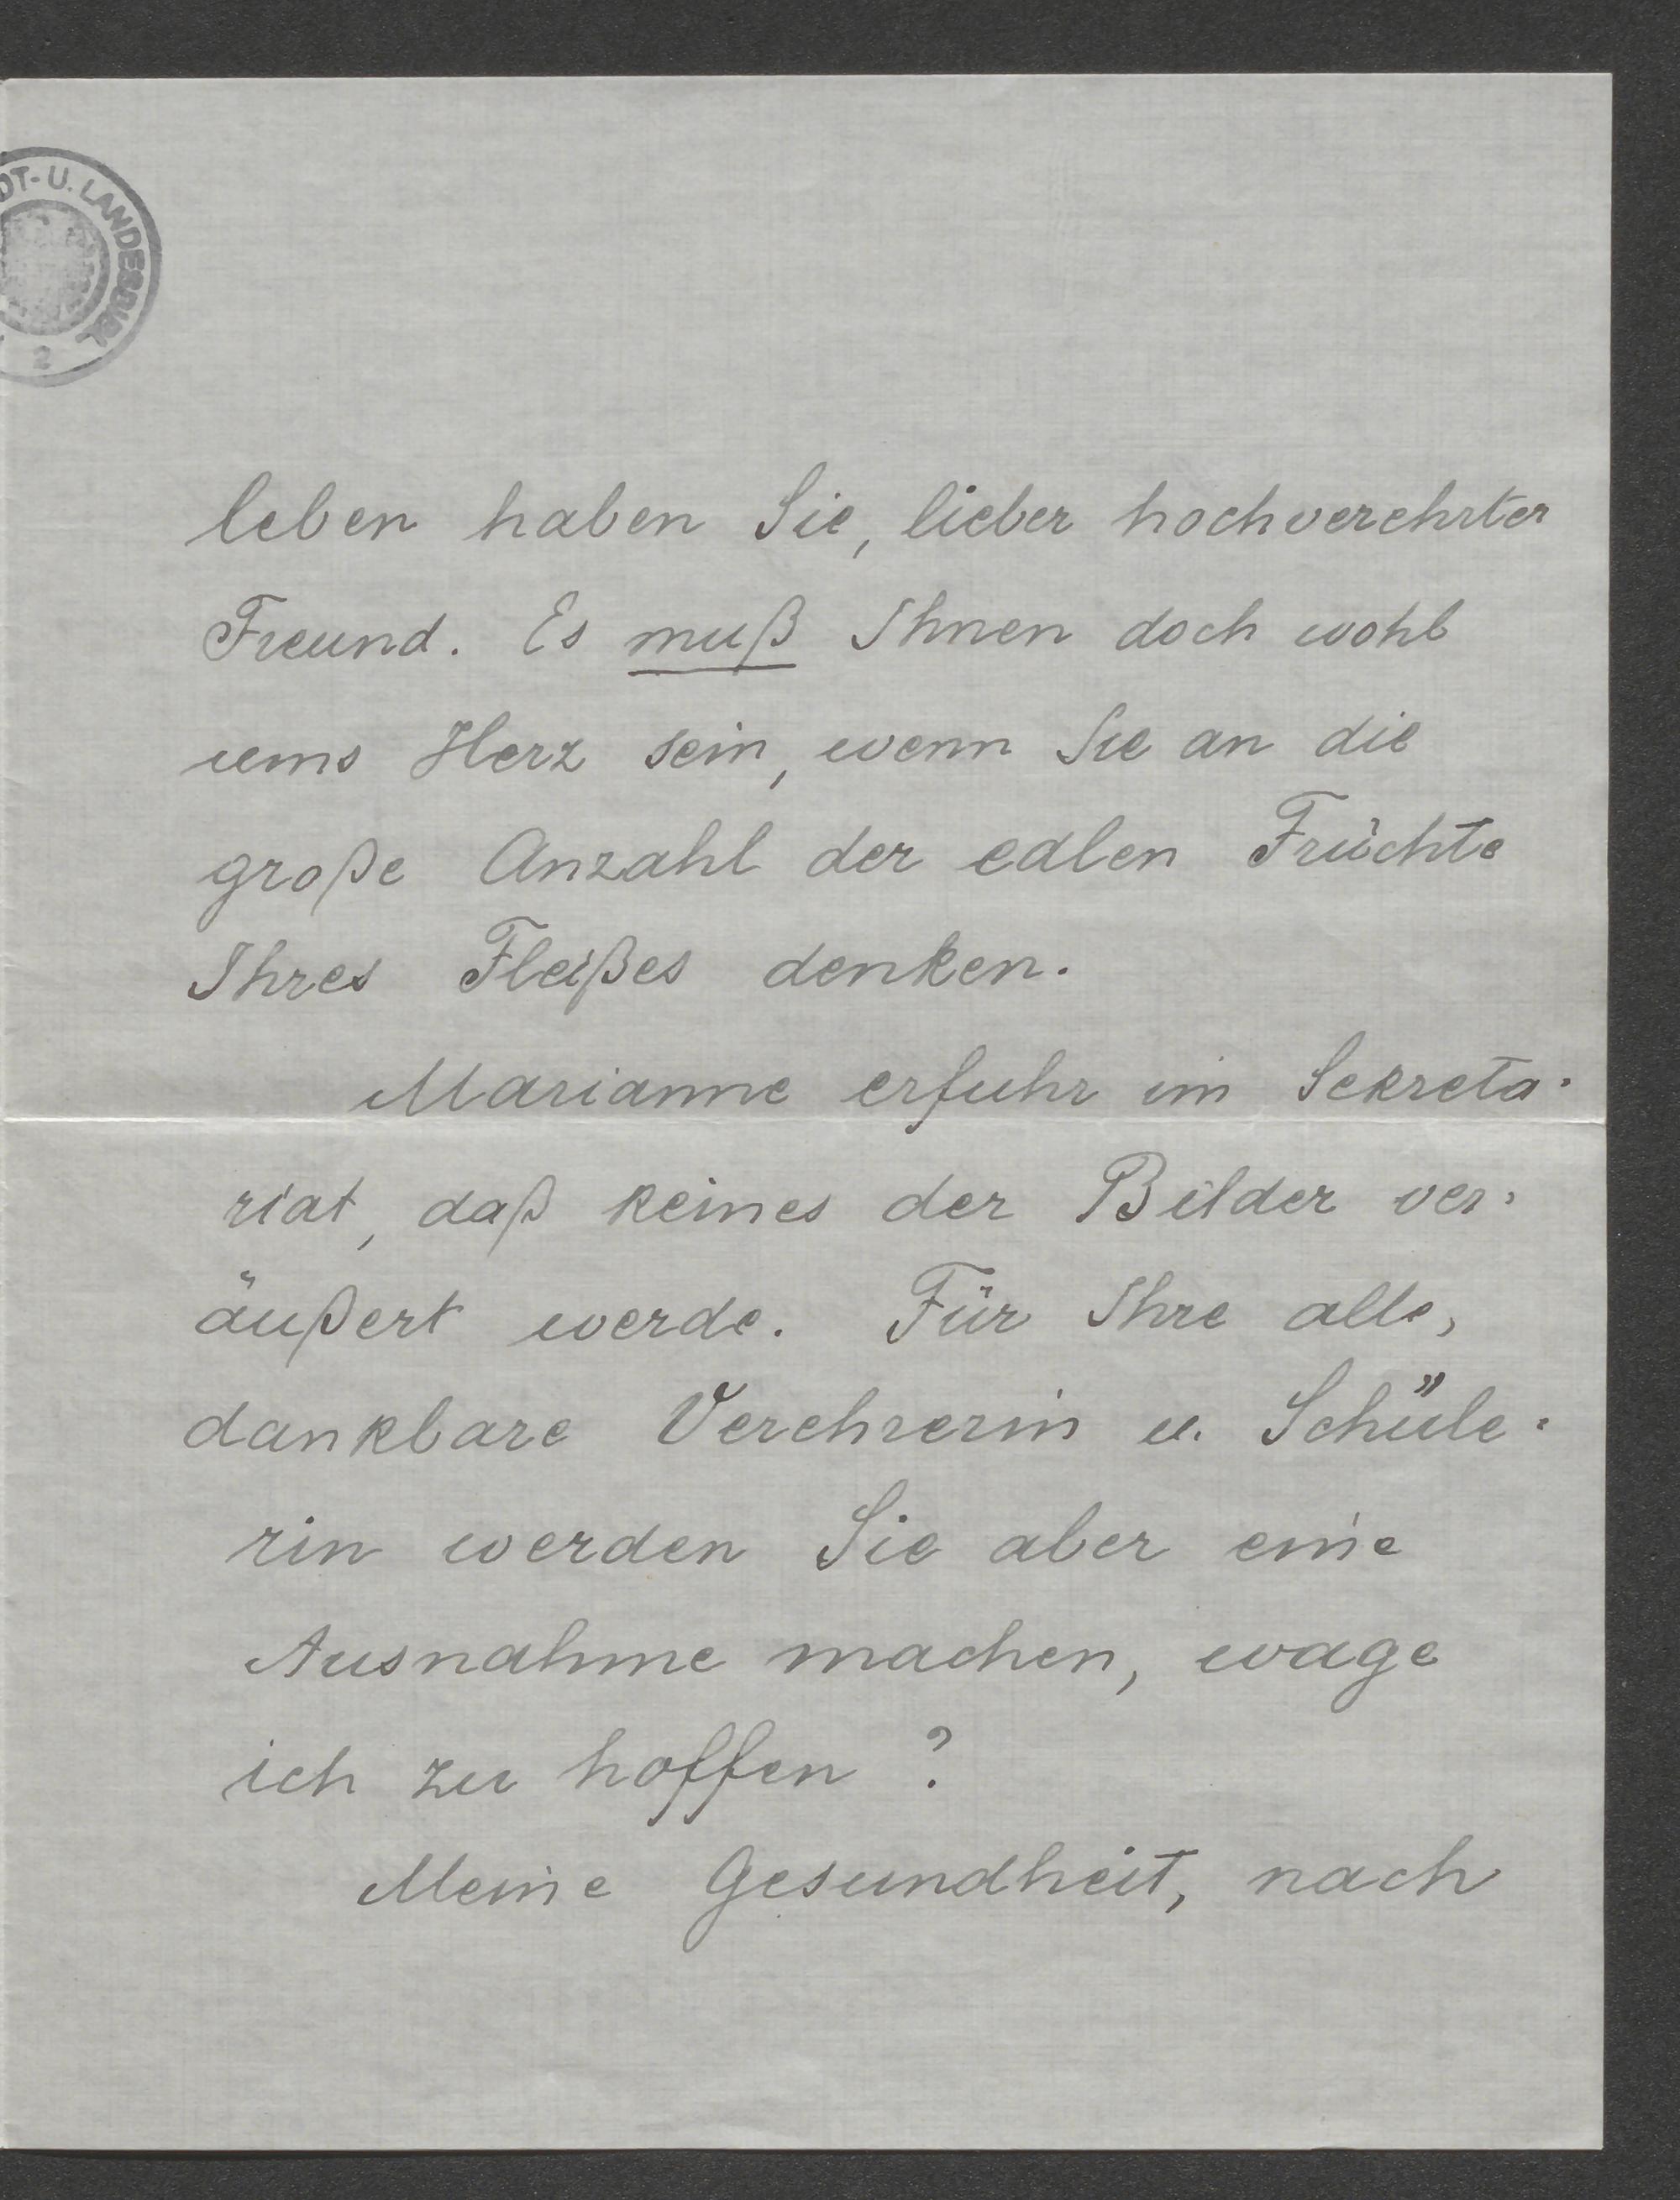 DT- U. LANDESBIBL
2
leben haben Sie, lieber hochverehrter
Freund. Es muß Ihnen doch wohl
ums Herz sein, wenn Sie an die
große Anzahl der edlen Früchte
Ihres Fleißes denken.
Marianne erfuhr im Sekreta-
riat, daß keines der Bilder ver-
äußert werde. Für Ihre alte,
dankbare Verehrerin u. Schüle-
rin werden Sie aber eine
Ausnahme machen, wage
ich zu hoffen?
Meine Gesundheit, nach